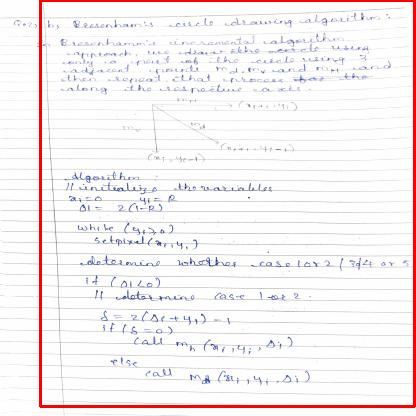 Q.2) b) Bresenham's circle drawing algorithm :
In Bresenham's incremental algorithm
approach, we draw the circle using
only a part of the circle using 3
adjacent points md, mv and mH and
then repeat that process for the
along the respective axis.
mH (xi+1, yi)
mv md
(xi, yi-1) (xi+1, yi-1)
Algorithm :
// initialize the variables
xi=0 yi=R
Δi= 2(1-R)
while (yi≥0)
setpixel(xi, yi)
determine whether case 1 or 2 / 3/4 or 5
if (Δi<0)
// determine case 1 or 2.
δ = 2(Δi+yi)-1
if (δ=0)
call mh (xi, yi, Δi)
else
call md (xi, yi, Δi)